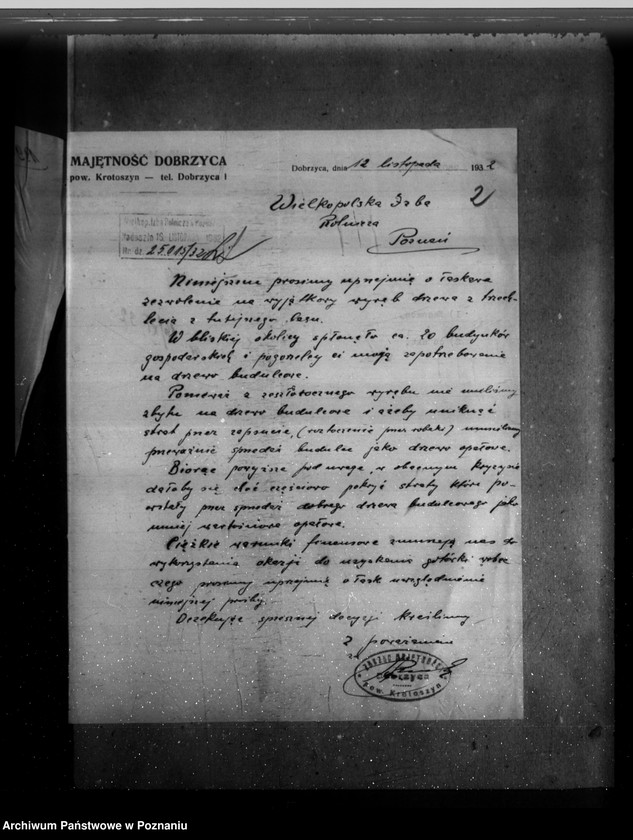 MAJĘTNOŚĆ DOBRZYCA
pow. Krotoszyn — tel. Dobrzyca 1
Dobrzyca, dnia 12 listopada 1932
2
Wielkopolska Izba
Rolnicza
Poznań
25.015/32
Niniejszem prosimy uprzejmie o łaskawe
zezwolenie na wyjątkowy wyrąb drzewa z trzeb-
lecia z tutejszego lasu.
W bliskiej okolicy spłonęło ca. 20 budynków
gospodarskich i pogorzelcy ci mają zapotrzebowanie
na drzewo budulcowe.
Ponieważ z zeszłorocznego wyrębu nie mieliśmy
zbytu na drzewo budulcowe i ażeby uniknąć
strat przez zepsucie, (roztoczenie przez robaki) musieliśmy
przeważnie sprzedać budulec jako drzewo opałowe.
Biorąc powyższe pod uwagę, w obecnym kryzysie
dałoby się choć częściowo pokryć straty które po-
wstały przez sprzedaż dobrego drzewa budulcowego jako
mniej wartościowe opałowe.
Ciężkie warunki finansowe zmuszają nas do
wykorzystania okazji do uzyskania gotówki wobec
czego prosimy uprzejmie o łask. uwzględnienie
niniejszej prośby.
Oczekując spiesznej decyzji kreślimy
Z poważaniem
ZARZĄD MAJĘTNOŚCI
Dobrzyca
pow. Krotoszyn
Archiwum Państwowe w Poznaniu